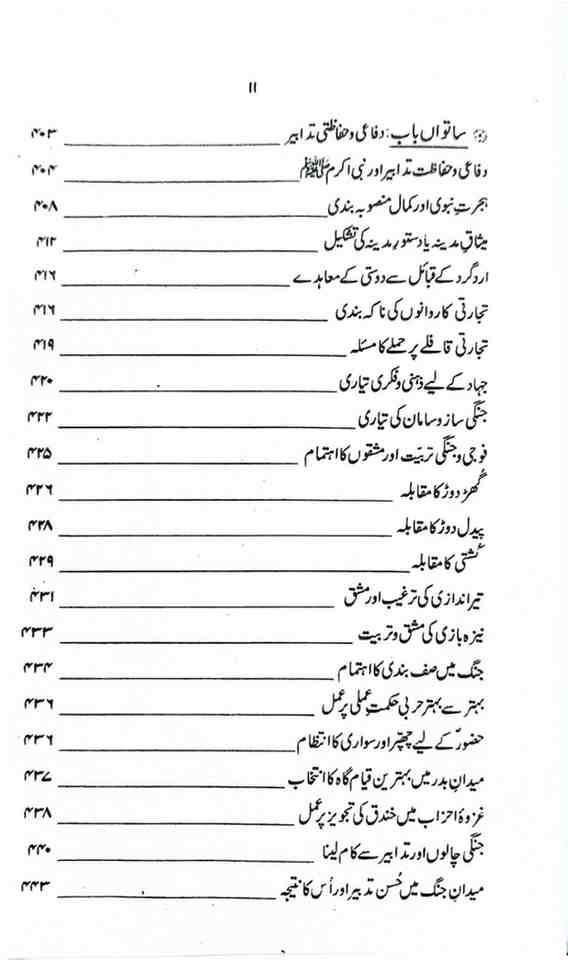 ۱۱
ساتواں باب: دفاعی و حفاظتی تدابیر ۴۰۳
دفاعی و حفاظت تدابیر اور نبی اکرم ﷺ ۴۰۴
ہجرتِ نبوی اور کمال منصوبہ بندی ۴۰۸
میثاقِ مدینہ یا دستورِ مدینہ کی تشکیل ۴۱۲
اردگرد کے قبائل سے دوستی کے معاہدے ۴۱۶
تجارتی کاروانوں کی ناکہ بندی ۴۱۶
تجارتی قافلے پر حملے کا مسئلہ ۴۱۹
جہاد کے لیے ذہنی و فکری تیاری ۴۲۰
جنگی ساز و سامان کی تیاری ۴۲۲
فوجی و جنگی تربیت اور مشقوں کا اہتمام ۴۲۵
گھُڑ دوڑ کا مقابلہ ۴۲۶
پیدل دوڑ کا مقابلہ ۴۲۸
کُشتی کا مقابلہ ۴۲۹
تیراندازی کی ترغیب اور مشق ۴۳۱
نیزہ بازی کی مشق و تربیت ۴۳۳
جنگ میں صف بندی کا اہتمام ۴۳۴
بہتر سے بہتر حربی حکمتِ عملی پر عمل ۴۳۶
حضورؐ کے لیے چھپّر اور سواری کا انتظام ۴۳۶
میدانِ بدر میں بہترین قیام گاہ کا انتخاب ۴۳۷
غزوۂ احزاب میں خندق کی تجویز پر عمل ۴۳۸
جنگی چالوں اور تدابیر سے کام لینا ۴۴۰
میدانِ جنگ میں حُسن تدبیر اور اُس کا نتیجہ ۴۴۳